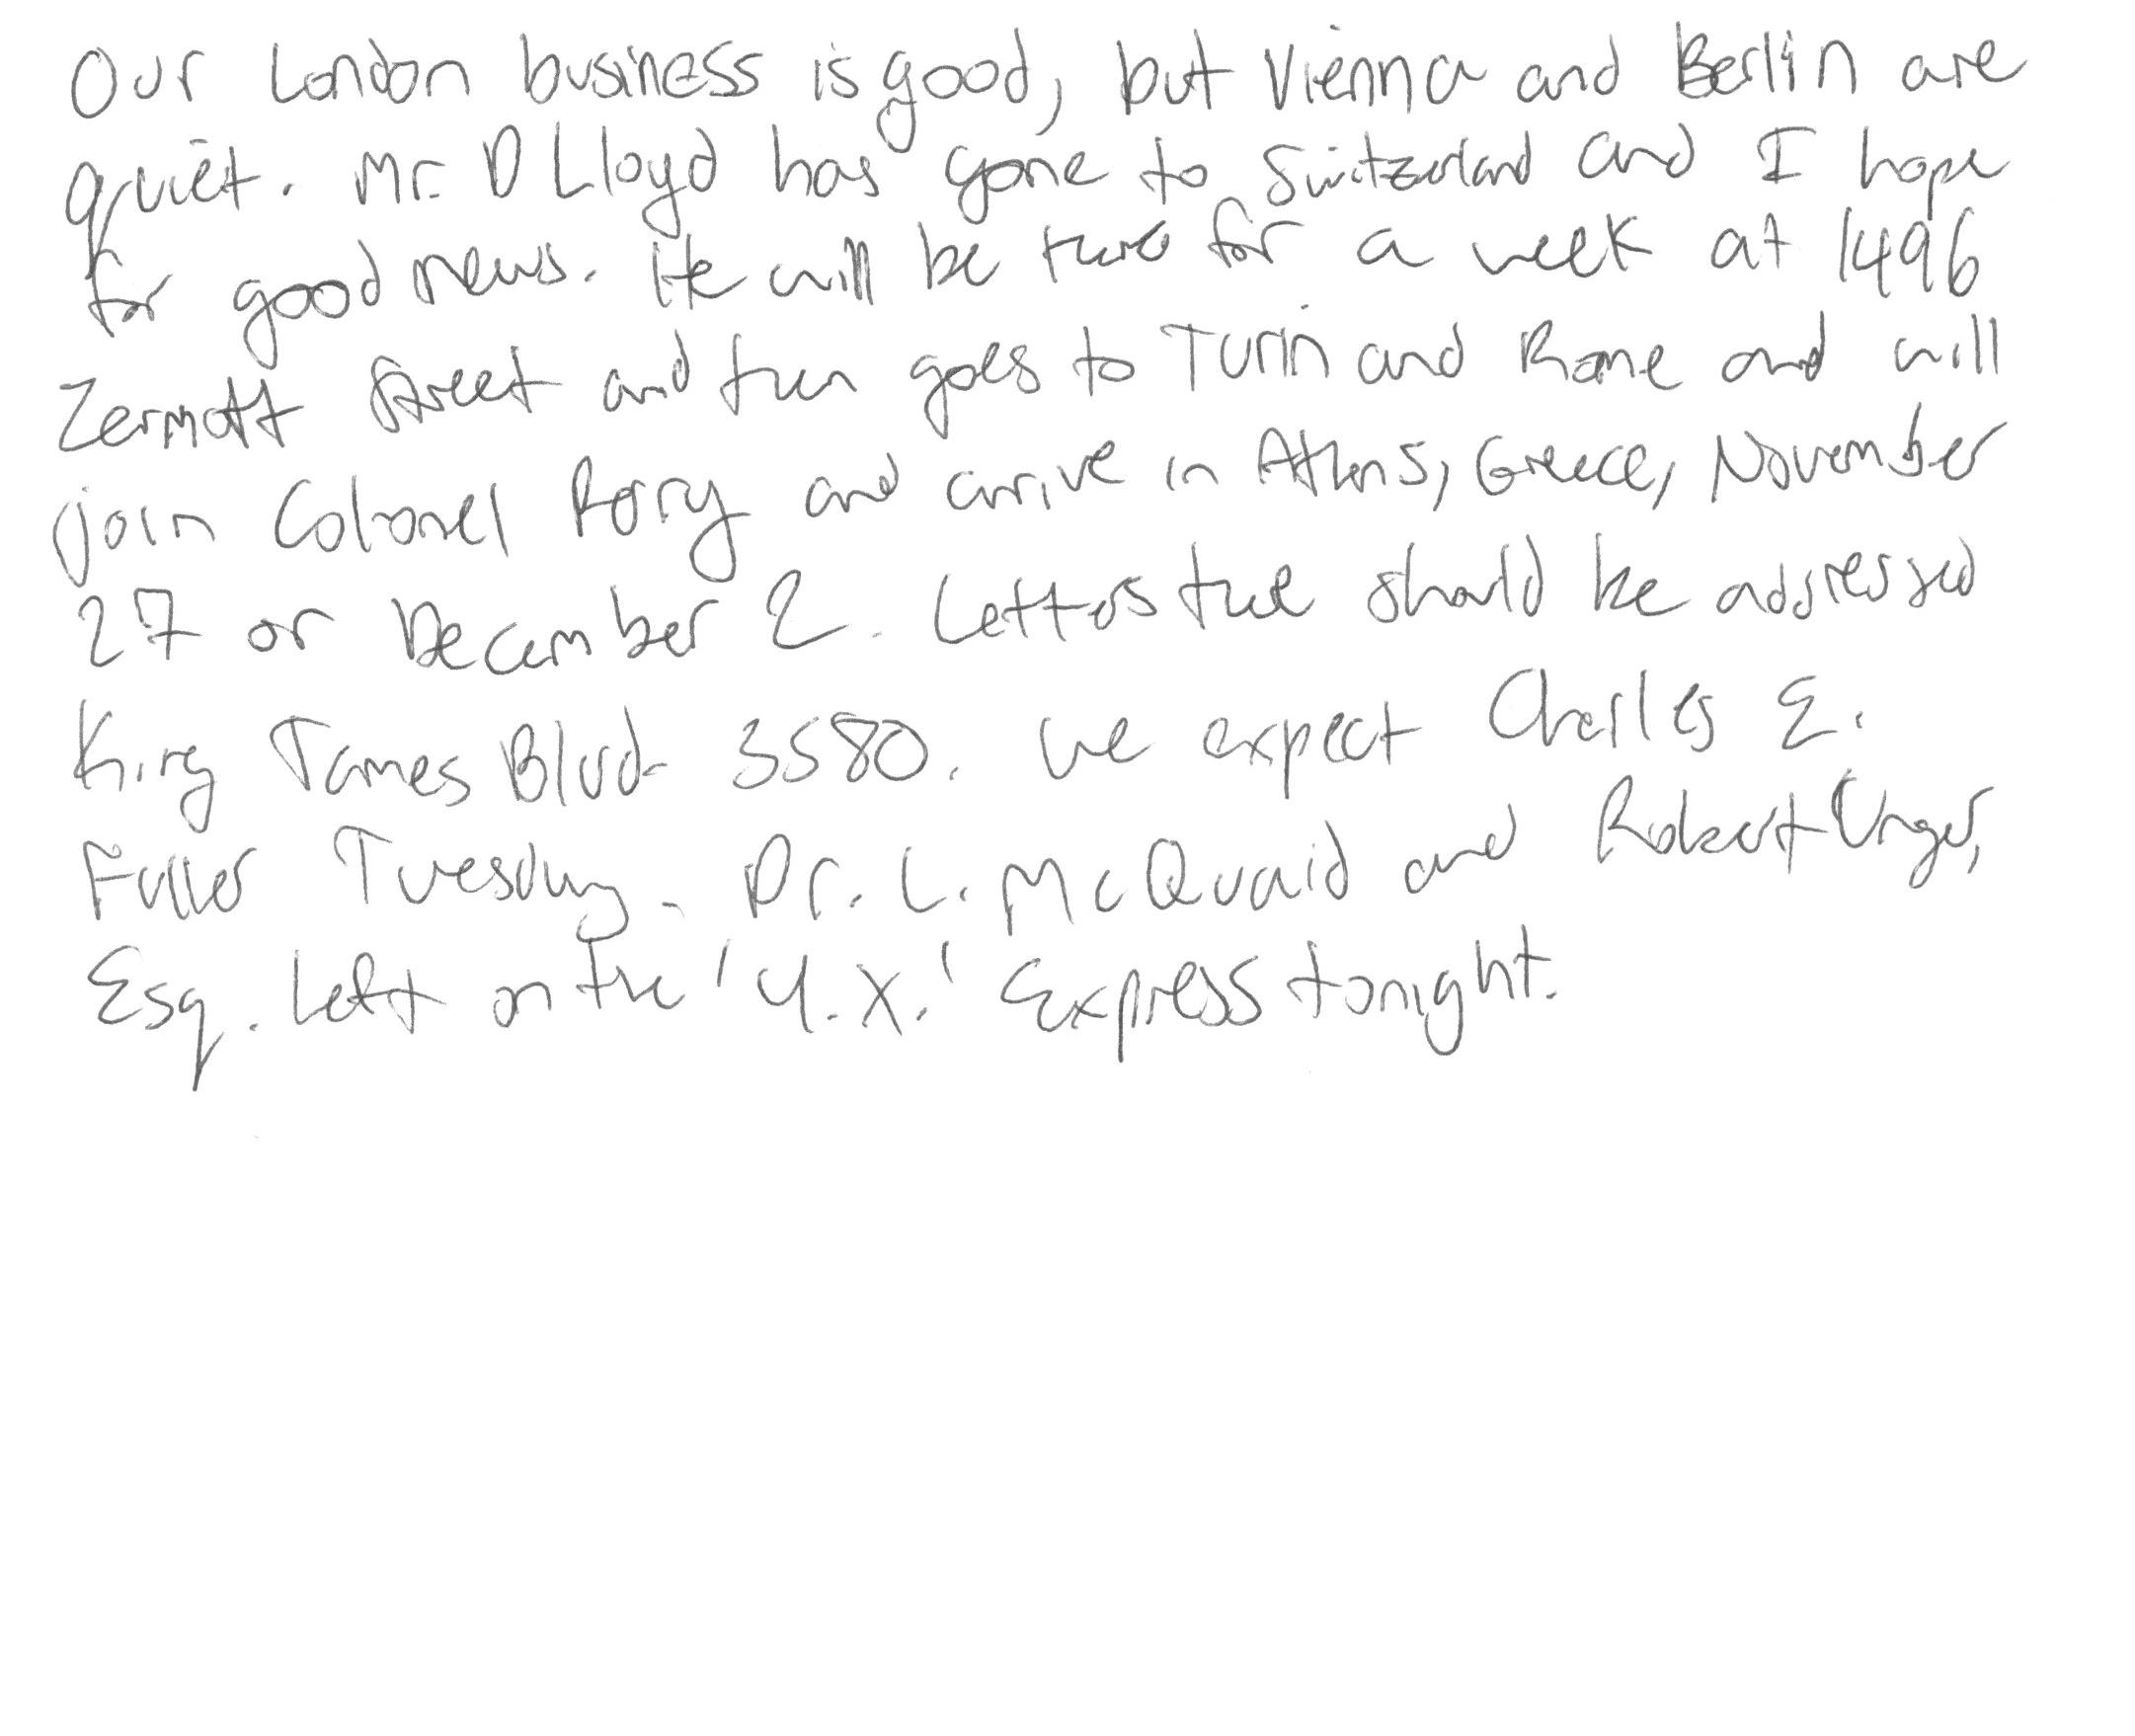 Our London business is good, but Vienna and Berlin are
quiet. Mr. D Lloyd has gone to Switzerland and I hope
for good news. He will be there for a week at 1496
Zermott Street and then goes to Turin and Rome and will
join Colonel Parry and arrive in Athens, Greece, November
27 or December 2. Letters there should be addressed
King James Blvd. 3580. We expect Charles E.
Fuller Tuesday. Dr. L. McQuaid and Robert Unger,
Esq. left on the 'Y.X.' Express tonight.